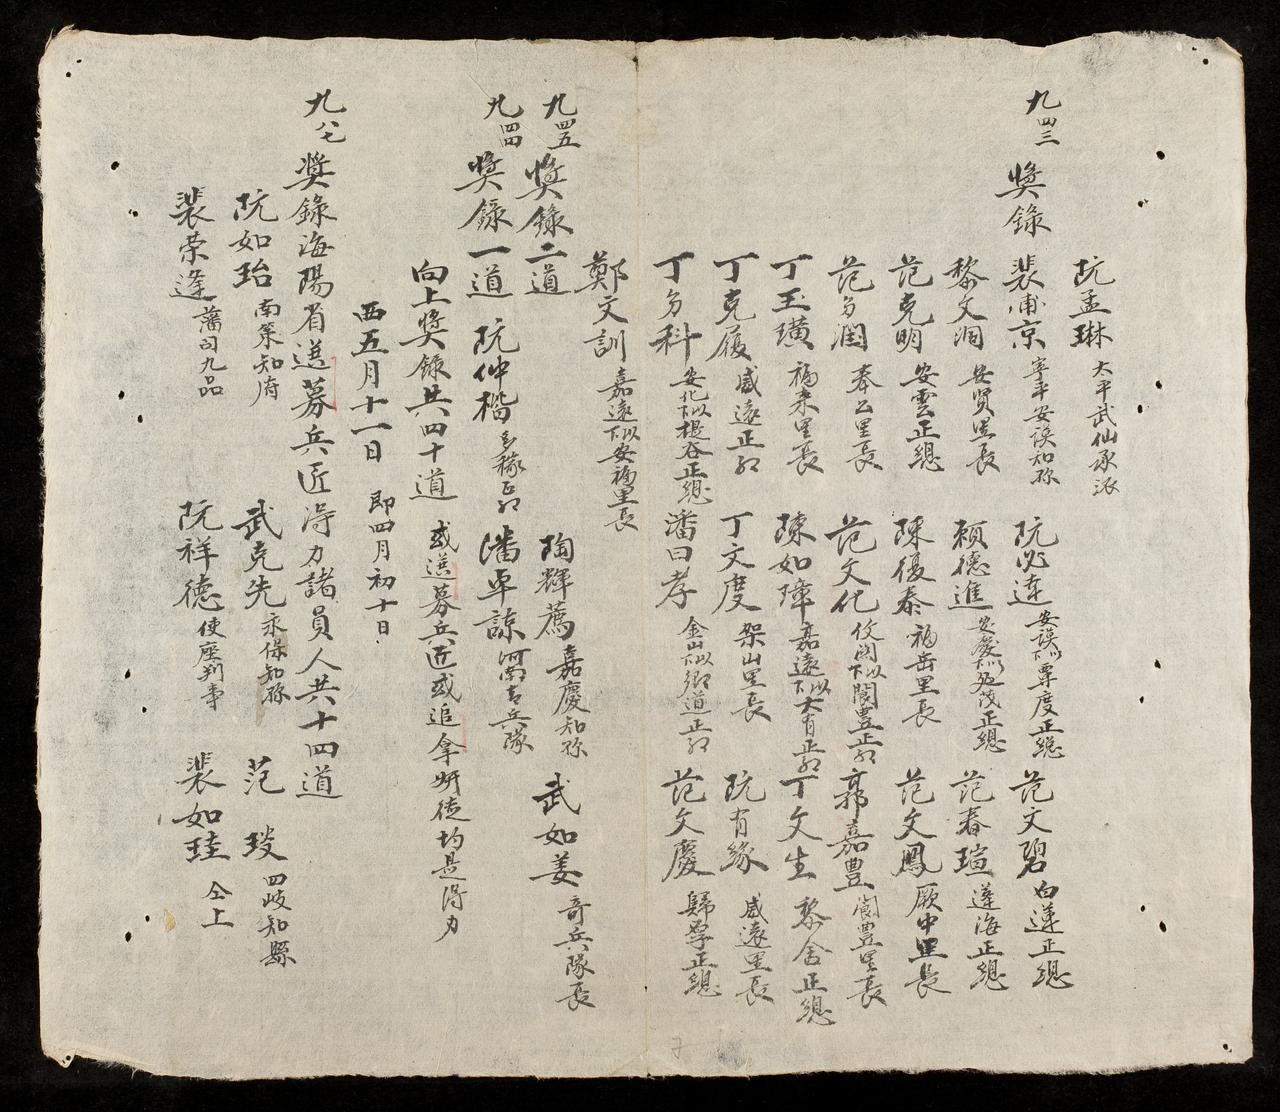 阮孟琳 太平武仙承派
九四三 獎錄 裴甫京 寧平安謨知縣 阮必達 安謨以下覃度正總 范文碧 白蓮正總
黎文潤 安賢里長 賴德進 安慶以下苑茂正總 范春瑄 蓮海正總
范克明 安雲正總 陳復泰 福岳里長 范文鳳 厥中里長
范多潤 奉公里長 范文化 攸閑以下閬豊正社 郭嘉豊 閬豊里長
丁玉璜 福來里長 陳如璋 嘉遠以下大有正社 丁文生 黎舍正總
丁克履 威遠正社 丁文度 架山里長 阮有緣 威遠里長
丁多科 安化以下提吞正總 潘曰孝 金山以下鄉道正社 范文慶 歸厚正總
鄭文訓 嘉遠以下安福里長
九四五 獎錄二道 陶輝薦 嘉慶知縣 武如姜 奇兵隊長
九四四 獎錄一道 阮仲楷 多稼正社 潘卓諒 河南吉兵隊
向上獎錄共四十道 或選募兵匠或追拿奸徒均是得力
西五月十一日 即四月初十日
九八七 獎錄海陽省選募兵匠得力諸員人共十四道
阮如珆 南策知府 武克先 永保知縣 范㻐 四岐知縣
裴荣逢 藩司九品 阮祥德 使座判事 裴如珪 仝上